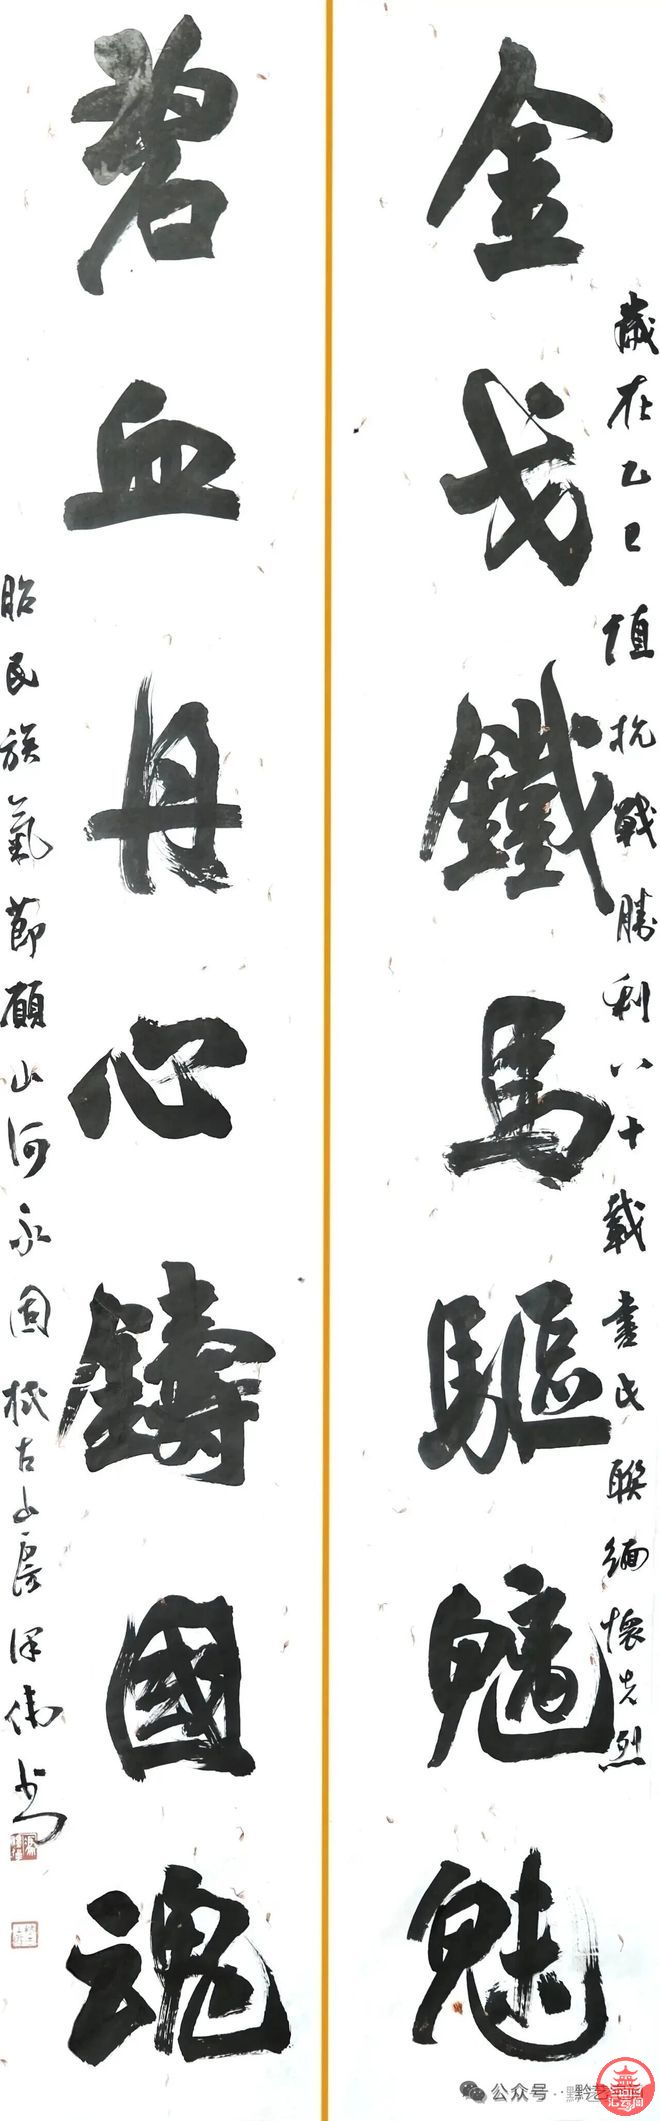 金戈鐵馬驅魑魅
歲在乙巳值抗戰勝利八十載書此聯緬懷先烈
碧血丹心鑄國魂
昭民族氣節願山河永固 古山房 偉書
公众号